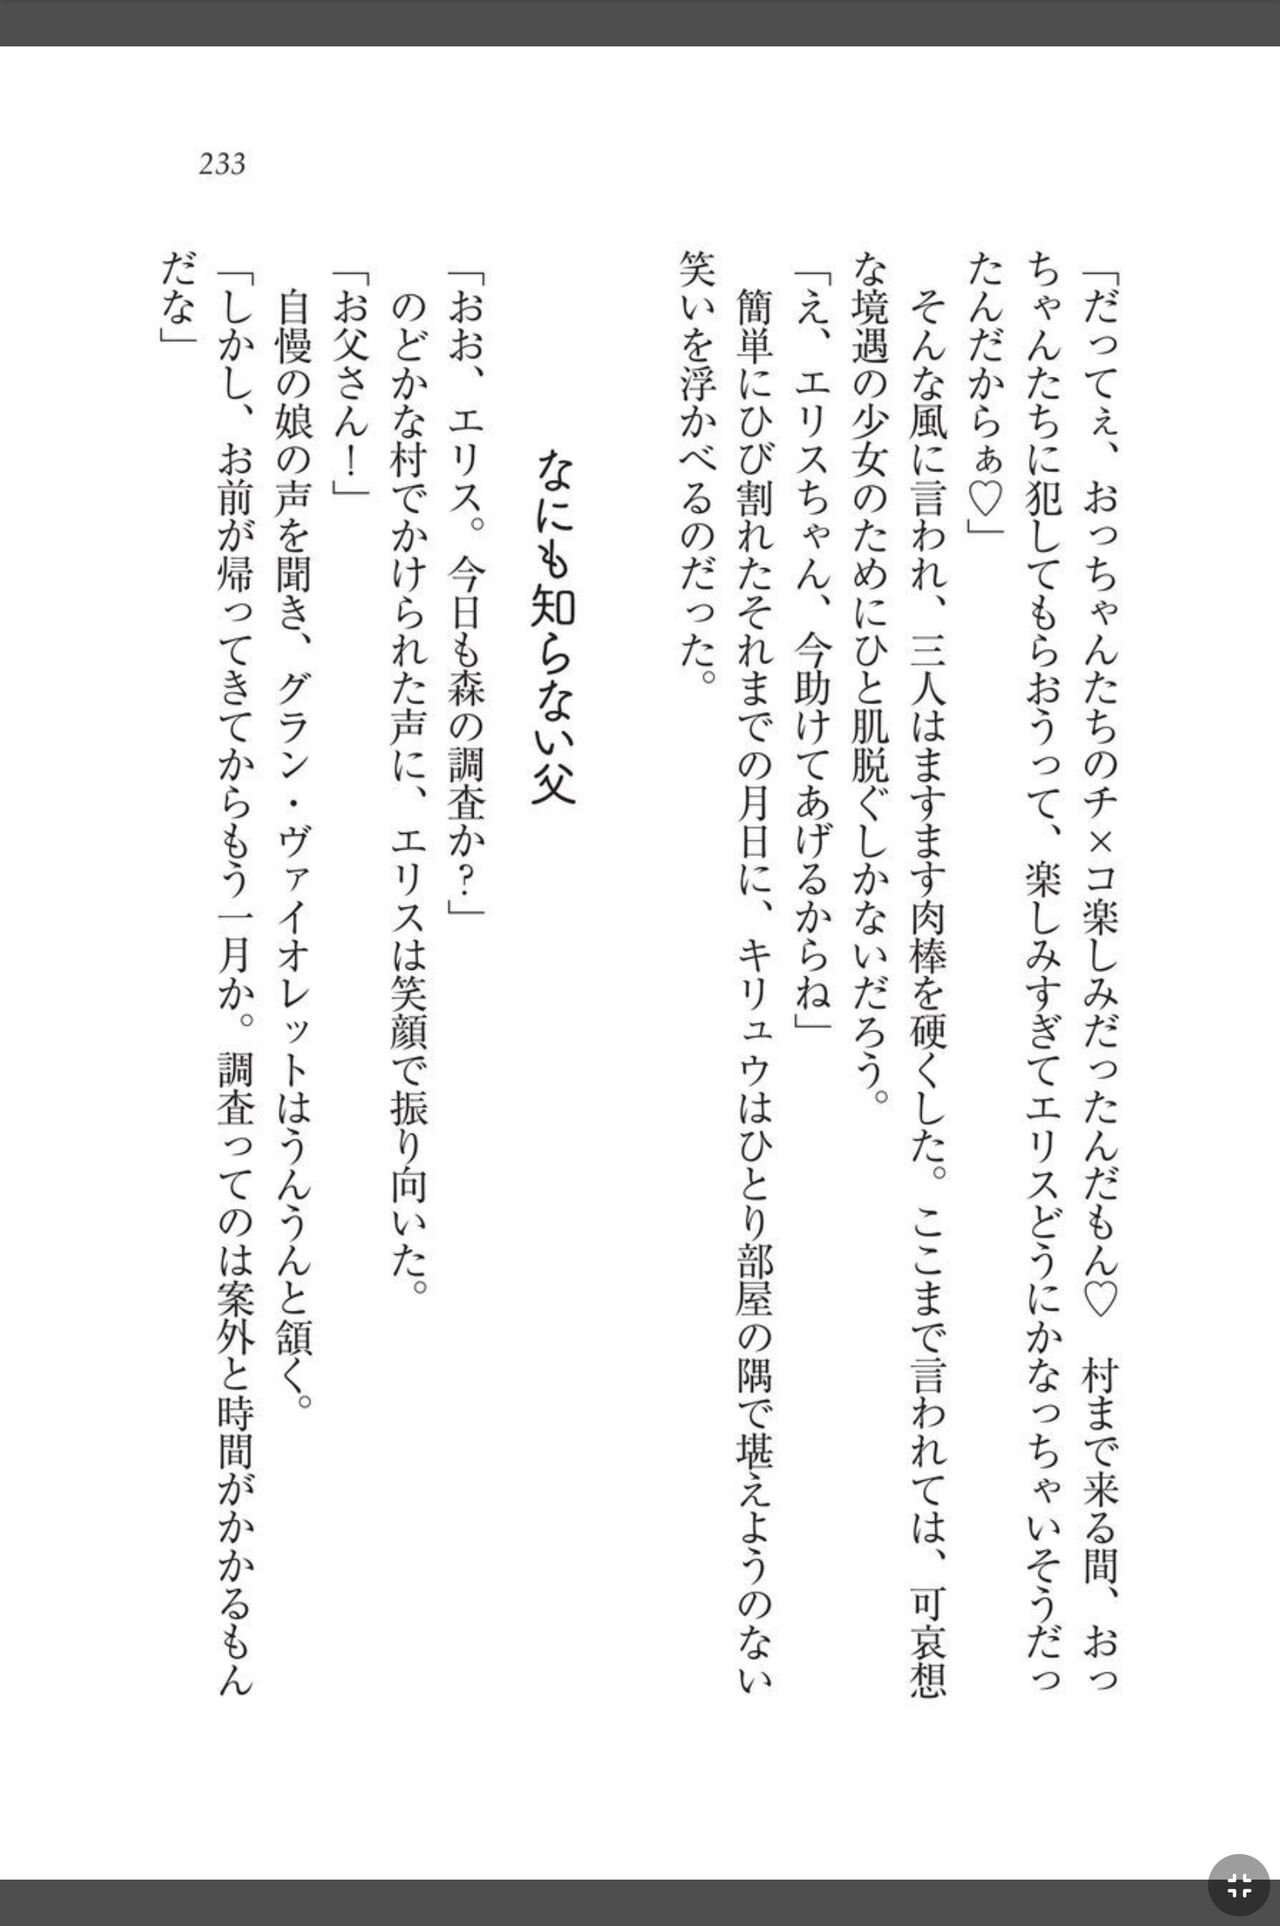 233
「だってぇ、おっちゃんたちのチ×コ楽しみだったんだもん♡　村まで来る間、おっ
ちゃんたちに犯してもらおうって、楽しみすぎてエリスどうにかなっちゃいそうだっ
たんだからぁ♡」
　そんな風に言われ、三人はますます肉棒を硬くした。ここまで言われては、可哀想
な境遇の少女のためにひと肌脱ぐしかないだろう。
「え、エリスちゃん、今助けてあげるからね」
　簡単にひび割れたそれまでの月日に、キリュウはひとり部屋の隅で堪えようのない
笑いを浮かべるのだった。
なにも知らない父
「おお、エリス。今日も森の調査か？」
　のどかな村でかけられた声に、エリスは笑顔で振り向いた。
「お父さん！」
　自慢の娘の声を聞き、グラン・ヴァイオレットはうんうんと頷く。
「しかし、お前が帰ってきてからもう一月か。調査ってのは案外と時間がかかるもん
だな」